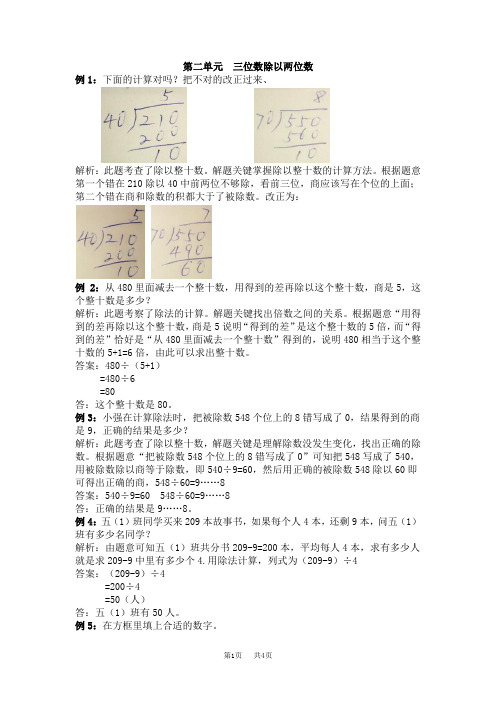 第二单元 三位数除以两位数
例1：下面的计算对吗？把不对的改正过来、
5
40)210
200
10
8
70)550
560
10
解析：此题考查了除以整十数。解题关键掌握除以整十数的计算方法。根据题意
第一个错在210除以40中前两位不够除，看前三位，商应该写在个位的上面；
第二个错在商和除数的积都大于了被除数。改正为：
5
40)210
200
10
7
70)550
490
60
例 2：从480里面减去一个整十数，用得到的差再除以这个整十数，商是5，这
个整十数是多少？
解析：此题考察了除法的计算。解题关键找出倍数之间的关系。根据题意“用得
到的差再除以这个整十数，商是5说明“得到的差”是这个整十数的5倍，而“得
到的差”恰好是“从480里面减去一个整十数”得到的，说明480相当于这个整
十数的5+1=6倍，由此可以求出整十数。
答案：480÷（5+1）
=480÷6
=80
答：这个整十数是80。
例3：小强在计算除法时，把被除数548个位上的8错写成了0，结果得到的商
是9，正确的结果是多少？
解析：此题考查了除以整十数，解题关键是理解除数没发生变化，找出正确的除
数。根据题意“把被除数548个位上的8错写成了0”可知把548写成了540，
用被除数除以商等于除数，即540÷9=60，然后用正确的被除数548除以60即
可得出正确的商，548÷60=9……8
答案：540÷9=60 548÷60=9……8
答：正确的结果是9……8。
例4：五（1）班同学买来209本故事书，如果每个人4本，还剩9本，问五（1）
班有多少名同学？
解析：由题意可知五（1）班共分书209-9=200本，平均每人4本，求有多少人
就是求209-9中里有多少个4.用除法计算，列式为（209-9）÷4
答案：（209-9）÷4
=200÷4
=50（人）
答：五（1）班有50人。
例5：在方框里填上合适的数字。
第1页 共4页